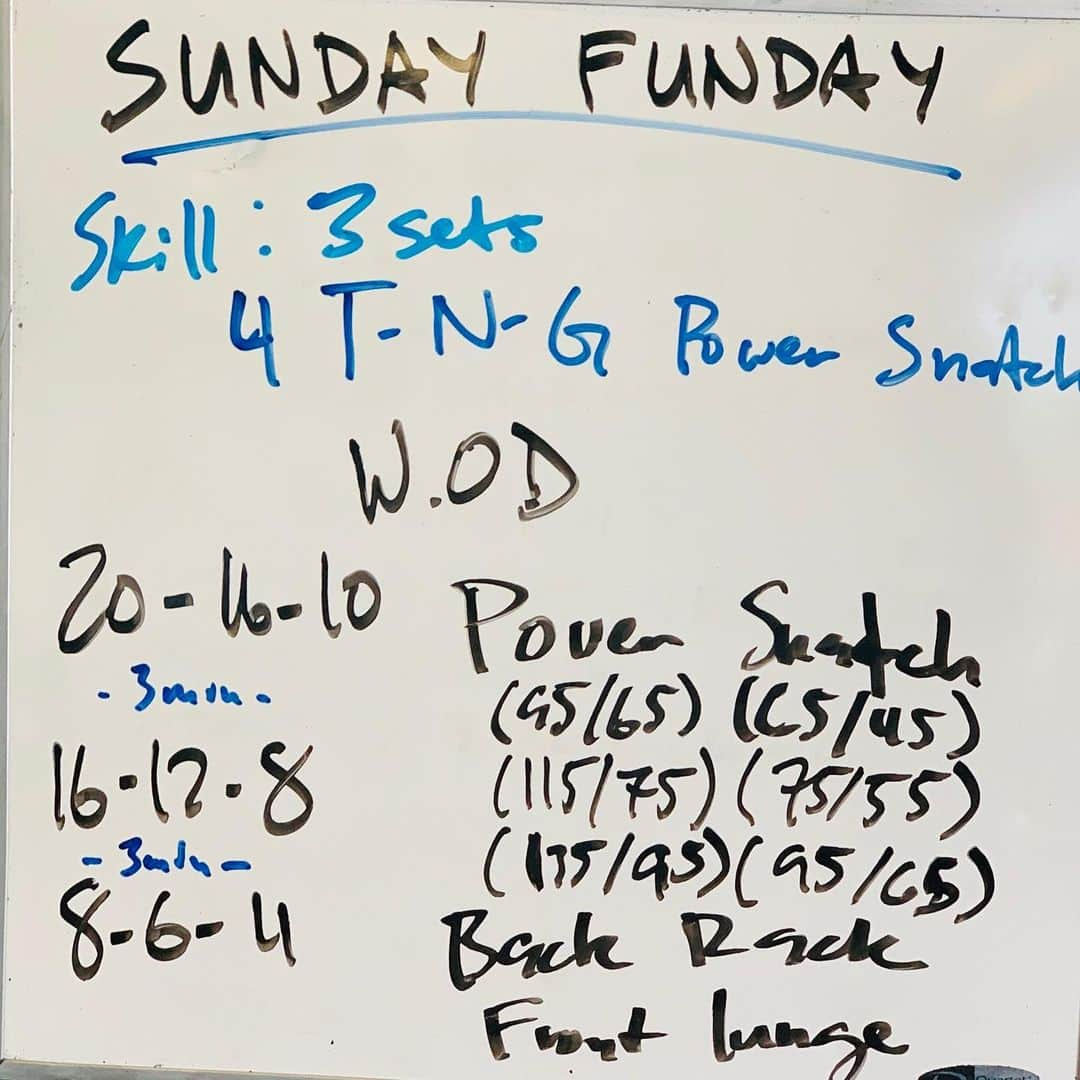 SUNDAY FUNDAY
Skill: 3 sets
4 T-N-G Power Snatch
W.OD
20-16-10
-3min-
16-12-8
-3min-
8-6-4
Power Snatch
(95/65) (65/45)
(115/75) (75/55)
(135/95) (95/65)
Back Rack
Front lunge